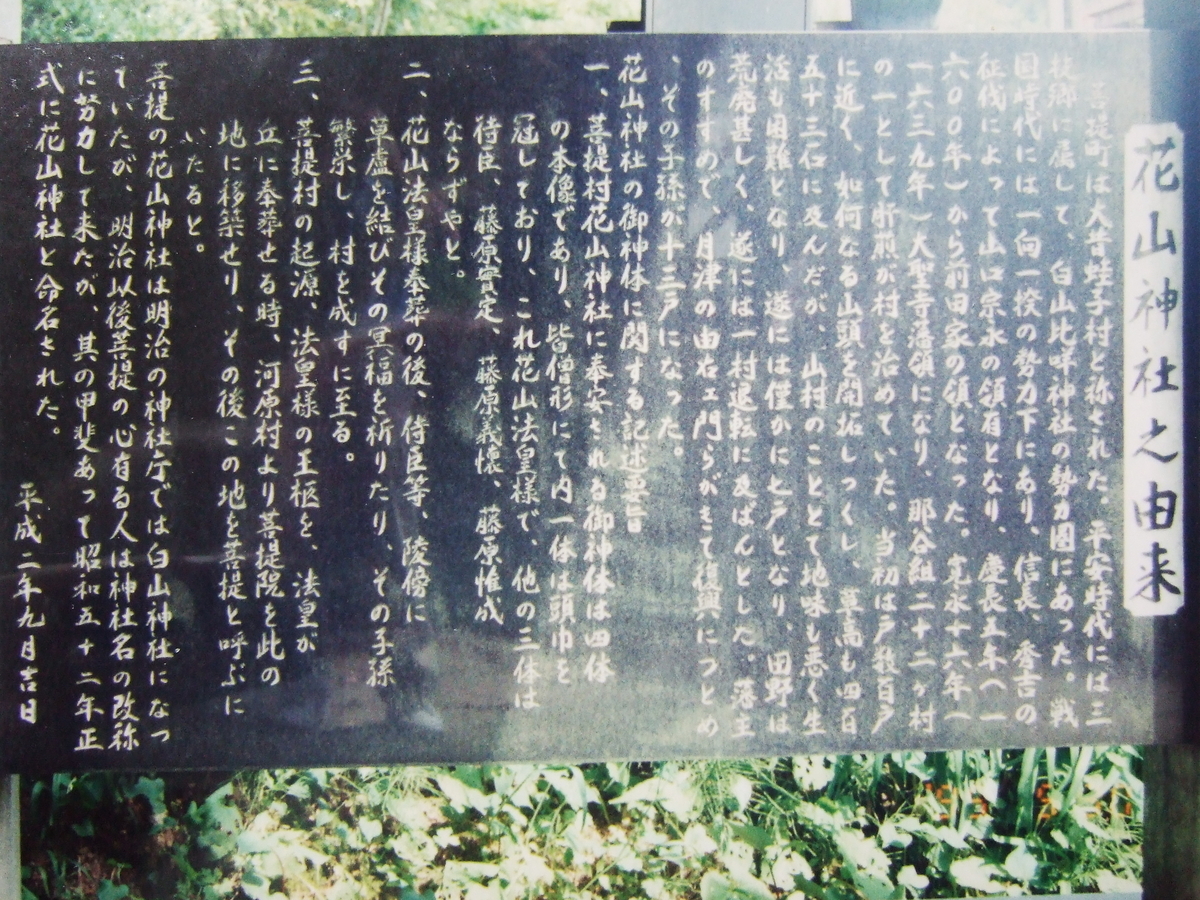 花山神社之由来
菩提町は大昔蛙子村と称された。平安時代には三
枝郷に属して、白山比咩神社の勢力圏にあった。戦
国時代には一向一揆の勢力下にあり、信長、秀吉の
征伐によって山口宗永の領有となり、慶長五年(一
六〇〇年)から前田家の領となった。寛永十六年(
一六三九年)大聖寺藩領になり、那谷組二十二ヶ村
の一として肝煎が村を治めていた。当初は戸数百戸
に近く、如何なる山頭を開拓しつくし、草高も四百
五十三石に及んだが、山村のこととて地味も悪く生
活も困難となり、遂には僅かに七戸となり、田野は
荒廃甚しく、遂には一村退転に及ばんとした。藩主
のすすめで、月津の由右ェ門らがきて復興につとめ
、その子孫が十三戸になった。
花山神社の御神体に関する記述要旨
一、菩提村花山神社に奉安される御神体は四体
の木像であり、皆僧形にて内一体は頭巾を
冠しており、これ花山法皇様で、他の三体は
侍臣、藤原實定、藤原義懐、藤原惟成
ならずやと。
二、花山法皇様奉葬の後、侍臣等、陵傍に
草廬を結びその冥福を祈りたり、その子孫
繁栄し、村を成すに至る。
三、菩提村の起源、法皇様の玉柩を、法皇が
丘に奉葬せる時、河原村より菩提院を此の
地に移築せり、その後この地を菩提と呼ぶに
いたると。
菩提の花山神社は明治の神社庁では白山神社になっ
ていたが、明治以後菩提の心有る人は神社名の改称
に努力して来たが、其の甲斐あって昭和五十二年正
式に花山神社と命名された。
平成二年九月吉日